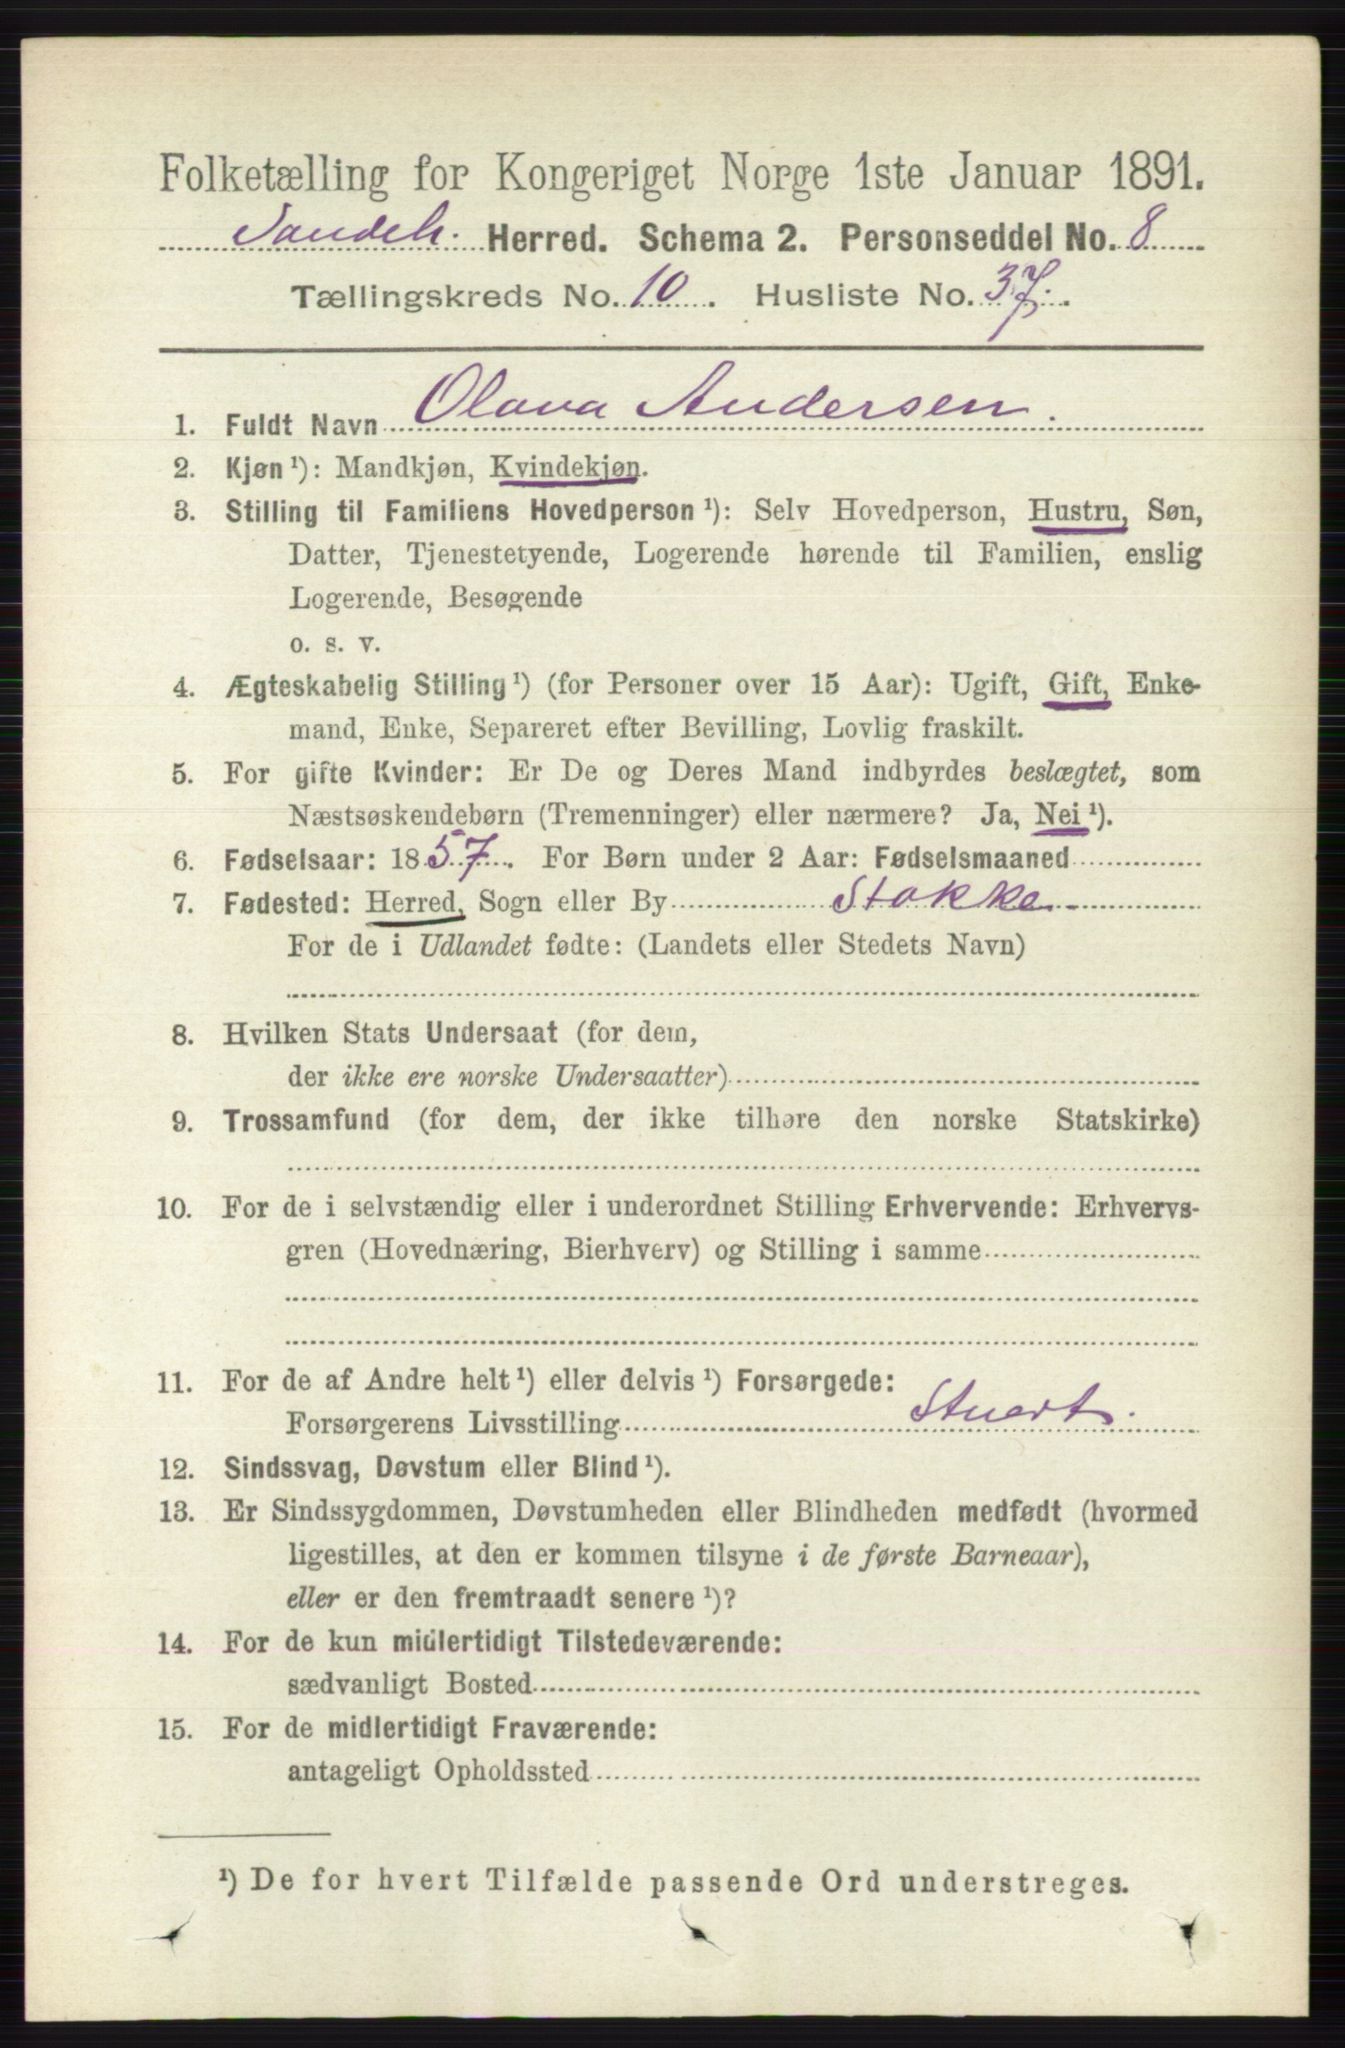 Folketælling for Kongeriget Norge 1ste Januar 1891.
Sandeh. Herred. Schema 2. Personseddel No. 8
Tællingskreds No. 10. Husliste No. 37.
1. Fuldt Navn Olava Andersen.
2. Kjøn¹): Mandkjøn, Kvindekjøn.
3. Stilling til Familiens Hovedperson¹): Selv Hovedperson, Hustru, Søn,
Datter, Tjenestetyende, Logerende hørende til Familien, enslig
Logerende, Besøgende
o. s. v.
4. Ægteskabelig Stilling¹) (for Personer over 15 Aar): Ugift, Gift, Enke-
mand, Enke, Separeret efter Bevilling, Lovlig fraskilt.
5. For gifte Kvinder: Er De og Deres Mand indbyrdes beslægtet, som
Næstsøskendebørn (Tremenninger) eller nærmere? Ja, Nei¹).
6. Fødselsaar: 1857. For Børn under 2 Aar: Fødselsmaaned
7. Fødested: Herred, Sogn eller By Stokke
For de i Udlandet fødte: (Landets eller Stedets Navn)
8. Hvilken Stats Undersaat (for dem,
der ikke ere norske Undersaatter)
9. Trossamfund (for dem, der ikke tilhøre den norske Statskirke)
10. For de i selvstændig eller i underordnet Stilling Erhvervende: Erhvervs-
gren (Hovednæring, Bierhverv) og Stilling i samme
11. For de af Andre helt¹) eller delvis¹) Forsørgede:
Forsørgerens Livsstilling Stuert.
12. Sindssvag, Døvstum eller Blind¹).
13. Er Sindssygdommen, Døvstumheden eller Blindheden medfødt (hvormed
ligestilles, at den er kommen tilsyne i de første Barneaar),
eller er den fremtraadt senere¹)?
14. For de kun midlertidigt Tilstedeværende:
sædvanligt Bosted
15. For de midlertidigt Fraværende:
antageligt Opholdssted
¹) De for hvert Tilfælde passende Ord understreges.